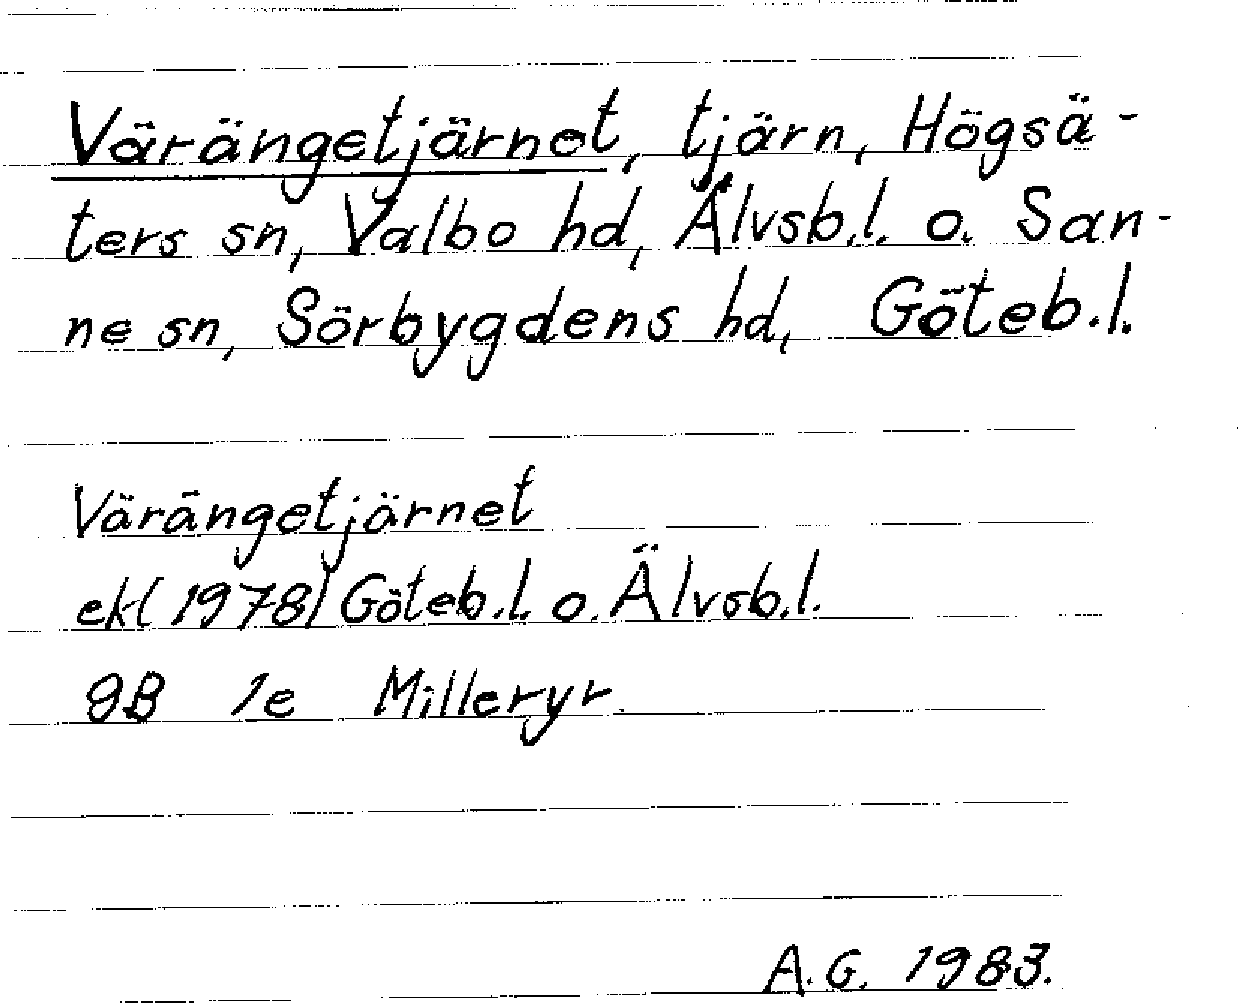 Värängetjärnet, tjärn, Högsä-
ters sn, Valbo hd, Älvsb.l. o. San-
ne sn, Sörbygdens hd, Göteb.l.
Värängetjärnet
ekl(1978) Göteb.l. o. Älvsb.l.
9B 1e Milleryr
A.G. 1983.